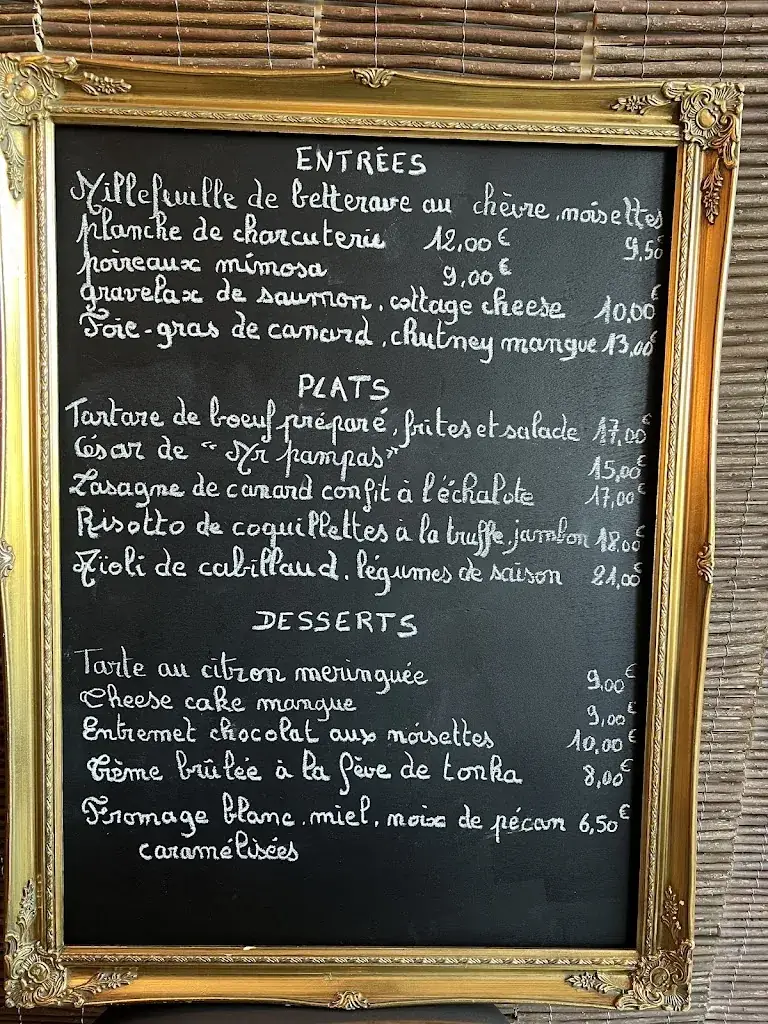 ENTRÉES
Millefeuille de betterave au chèvre, noisettes
9,50
planche de charcuterie 12,00€
poireaux mimosa 9,00€
gravelax de saumon, cottage cheese 10,00€
Foie-gras de canard, chutney mangue 13,00€
PLATS
Tartare de boeuf préparé, frites et salade 17,00€
César de "Mr pampas" 15,00€
Lasagne de canard confit à l'échalote 17,00€
Risotto de coquillettes à la truffe, jambon 18,00€
Aïoli de cabillaud, légumes de saison 21,00€
DESSERTS
Tarte au citron meringuée 9,00€
Cheese cake mangue 9,00€
Entremet chocolat aux noisettes 10,00€
Crème brûlée à la fève de tonka 8,00€
Fromage blanc, miel, noix de pécan 6,50€
caramélisées